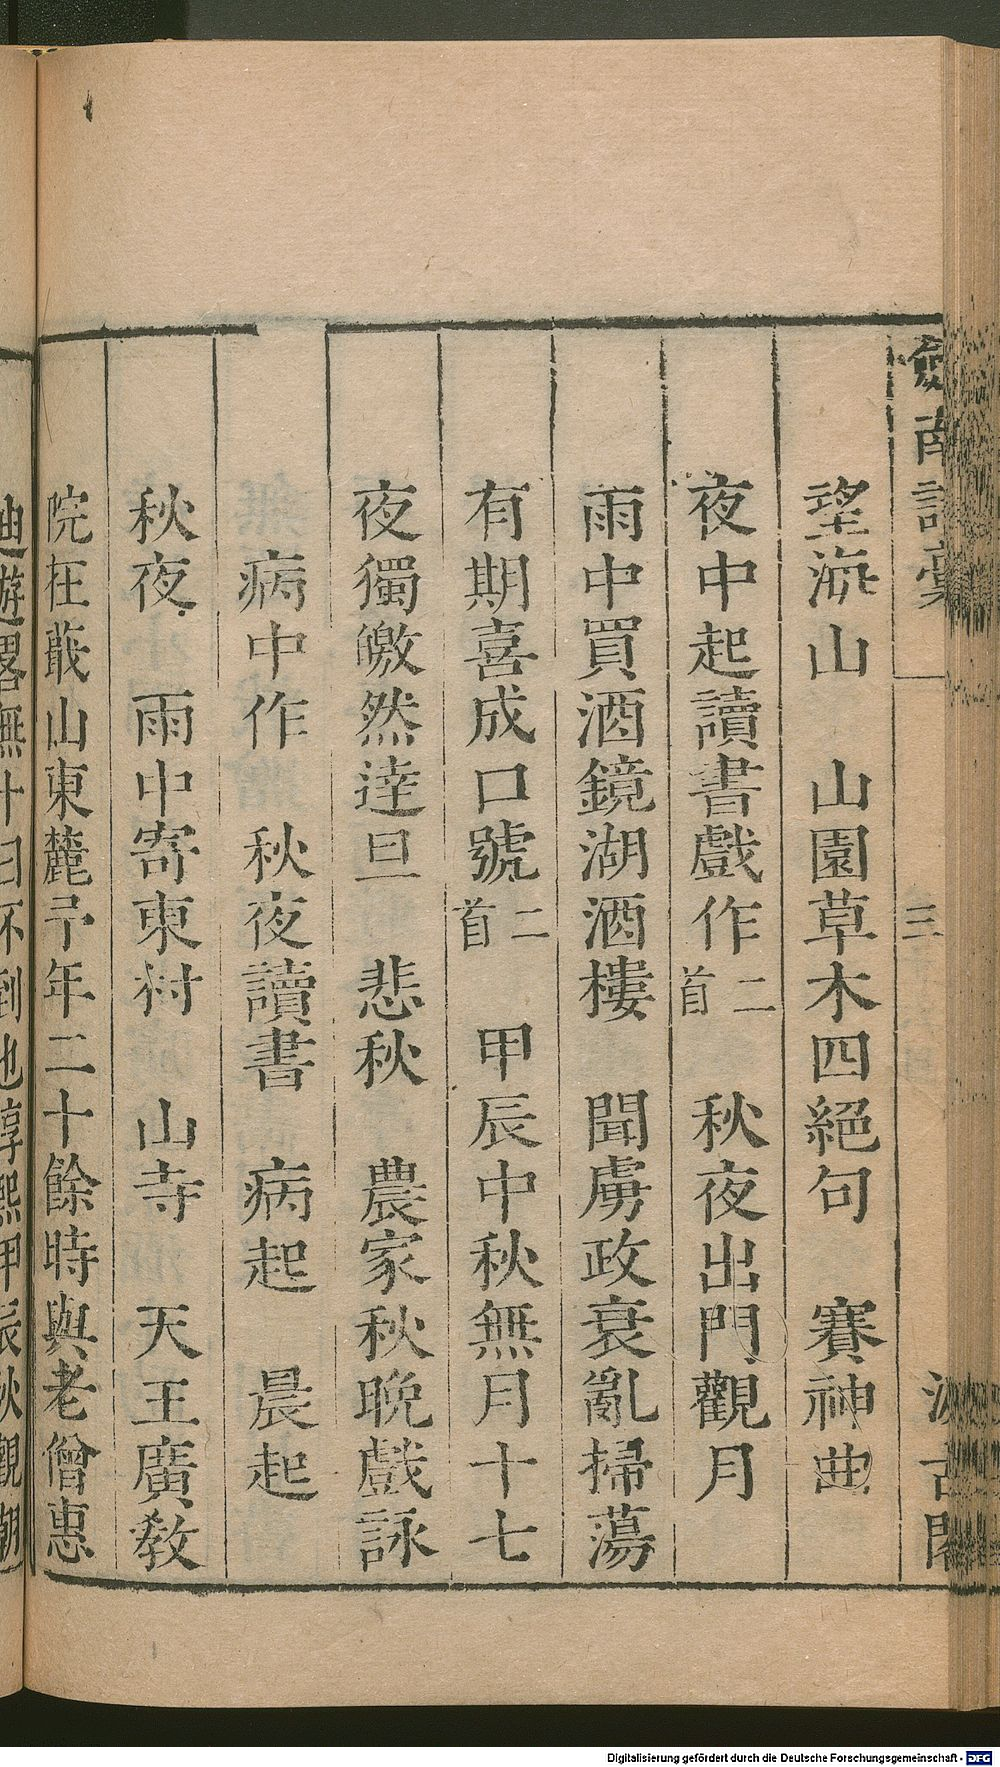 劍南詩稾
三
汲古閣
望海山　山園草木四絕句　賽神曲
夜中起讀書戲作二首　秋夜出門觀月
雨中買酒鏡湖酒樓　聞虜政衰亂掃蕩
有期喜成口號二首　甲辰中秋無月十七
夜獨皦然達旦　悲秋　農家秋晚戲詠
病中作　秋夜讀書　病起　晨起
秋夜　雨中寄東村　山寺　天王廣敎
院在蕺山東麓予年二十餘時與老僧惠
迪遊畧無十日不到也淳熙甲辰秋觀潮
Digitalisierung gefördert durch die Deutsche Forschungsgemeinschaft - DFG